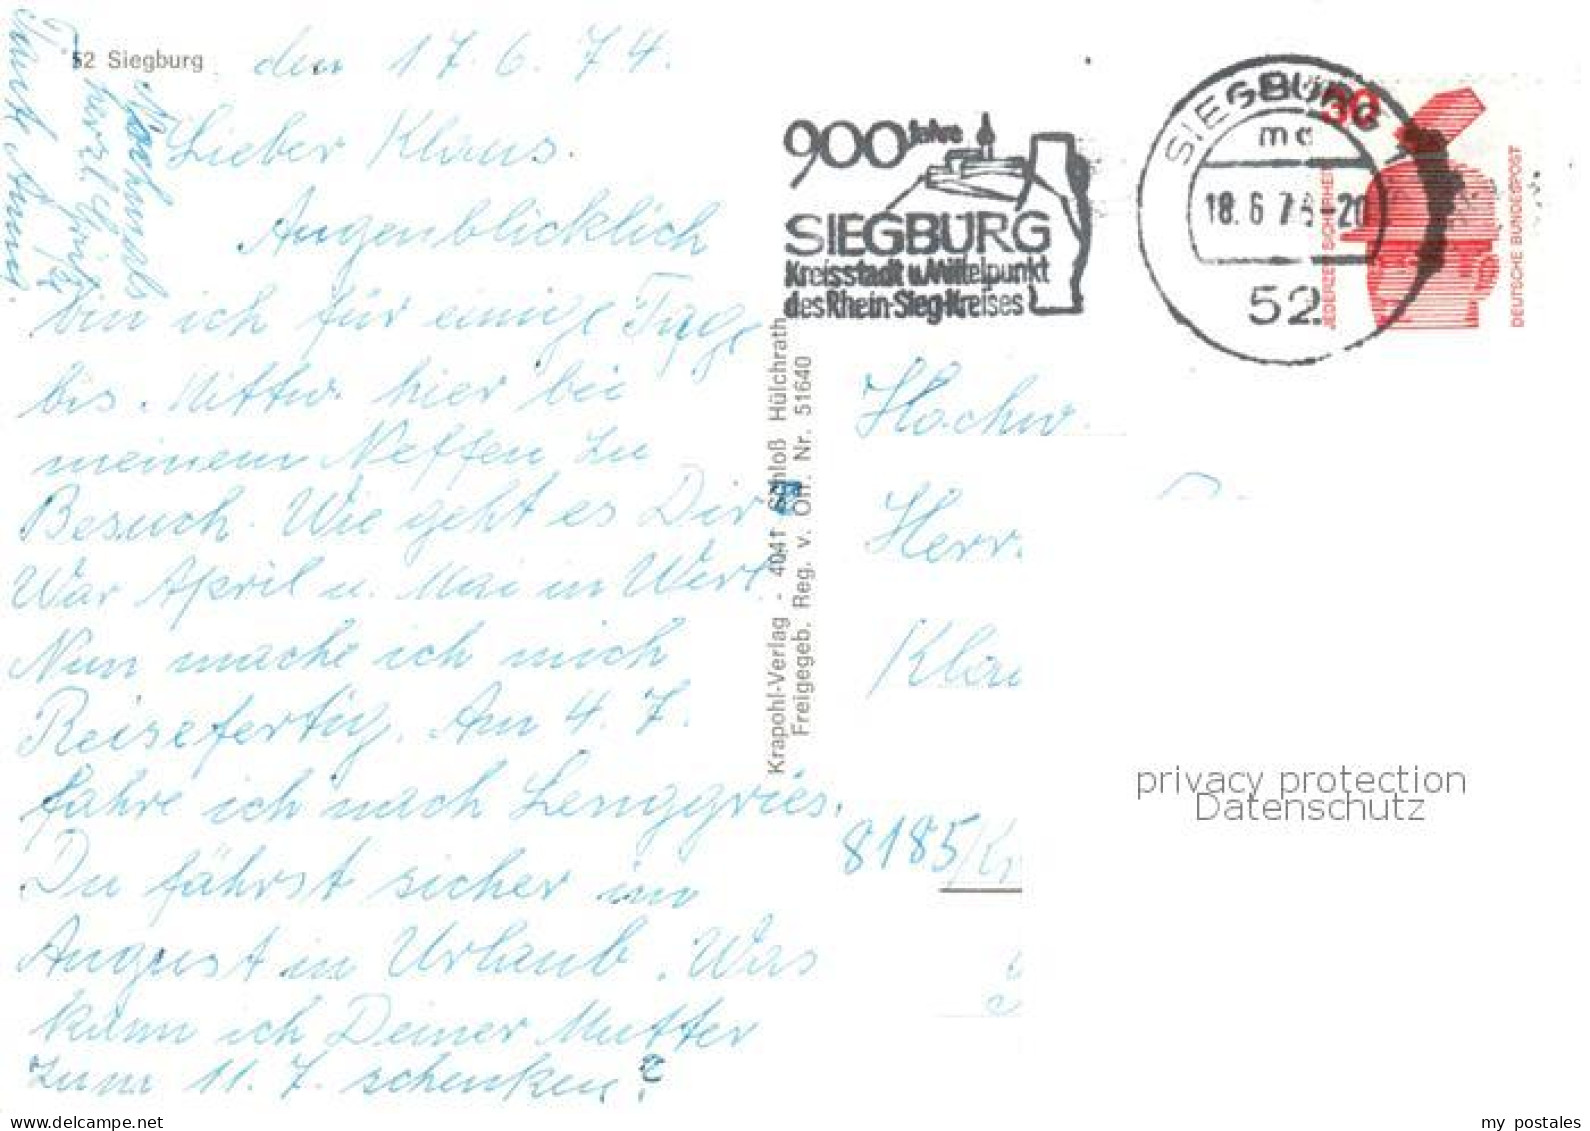 52 Siegburg
den 17.6.74.
Lieber Klaus.
Augenblicklich
bin ich für einige Tage
bis. Mittw. hier bei
meinem Neffen zu
Besuch. Wie geht es Dir
War April u. Mai in Werl.
Nun mache ich mich
Reisefertig. Am 4. 7.
fahre ich nach Lenggries.
Du fährst sicher im
August in Urlaub. Was
kann ich Deiner Mutter
zum 11. 7. schenken?
Nochmals
herzl.
Tante Anna
Krapohl-Verlag - 4041 Schloß Hülchrath
Freigegeb. Reg. v. Off. Nr. 51640
900 Jahre
SIEGBURG
Kreisstadt u. Mittelpunkt
des Rhein-Sieg-Kreises
SIEGBURG
mc
18. 6. 7 -20
52
30
JEDERZEIT SICHERHEIT
DEUTSCHE BUNDESPOST
Hochw.
Herr.
Klau
8185/Kr
privacy protection
Datenschutz
my postales